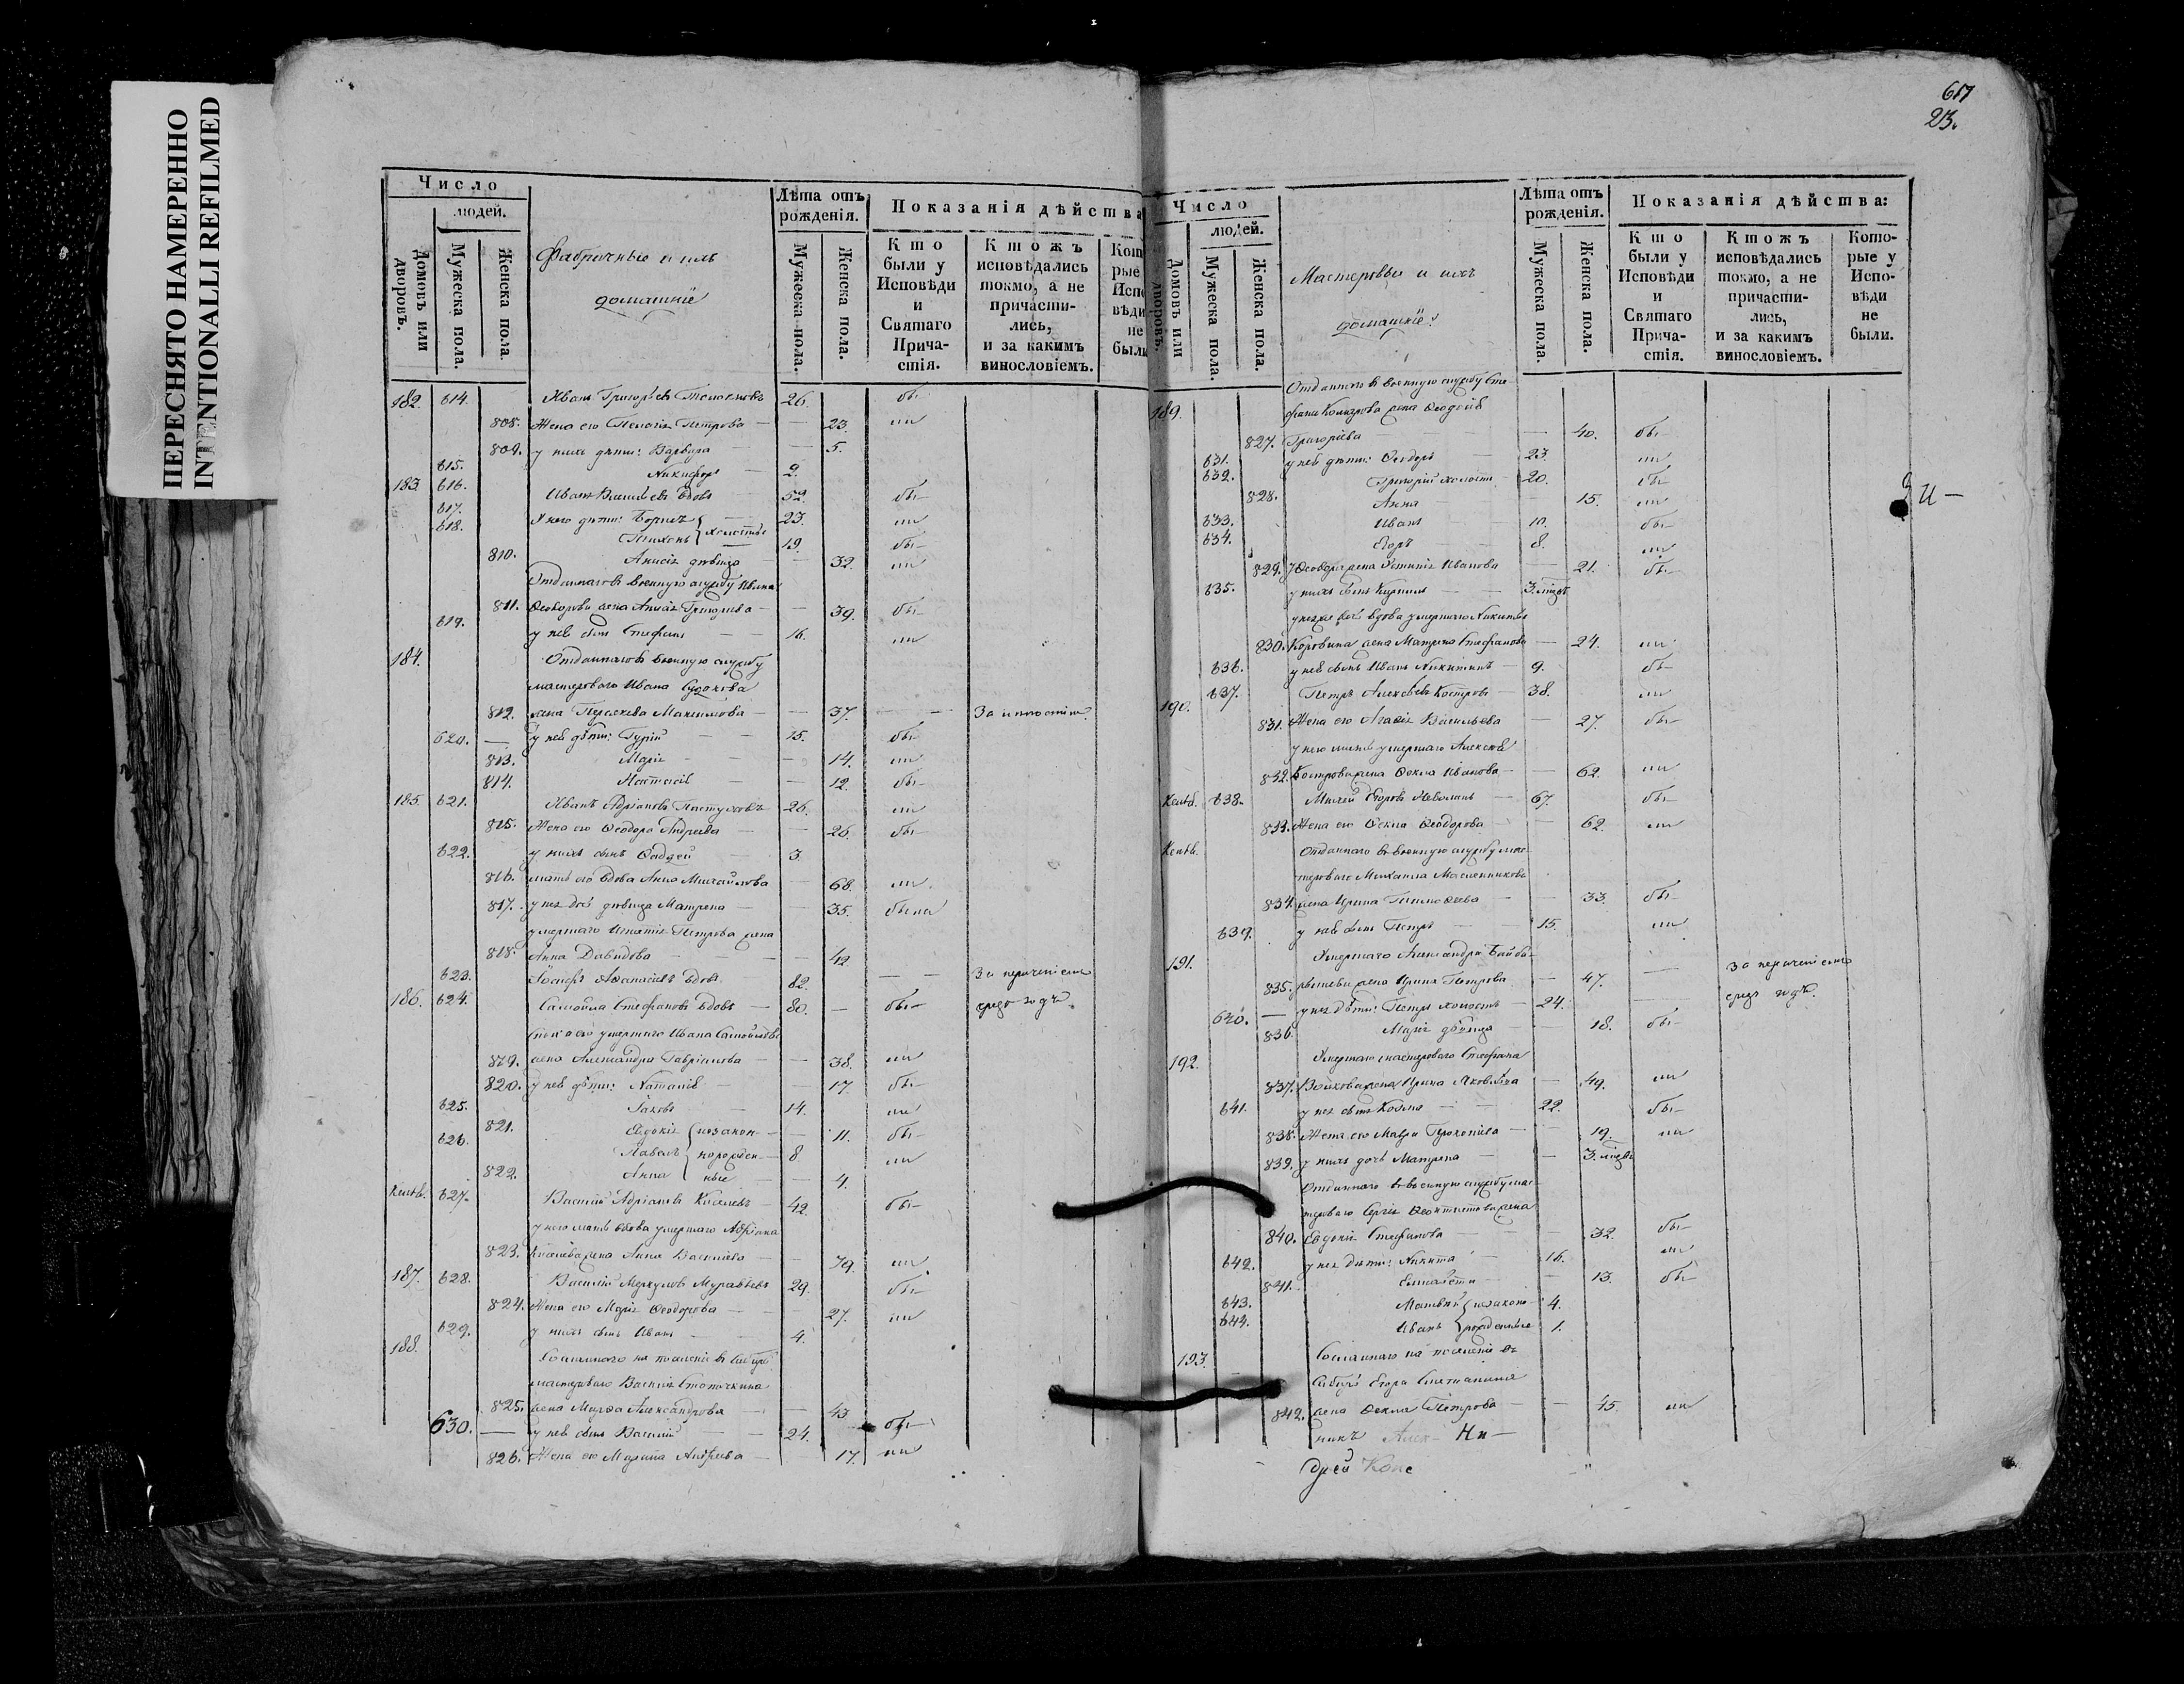 ПЕРЕСНЯТО НАМЕРЕННО
INTENTIONALLI REFILMED
617
23.
Число
людей.
Домовъ или дворовъ.
Мужеска пола.
Женска пола.
Фабричные и ихъ
домашніе
Лѣта отъ рожденія.
Мужеска пола.
Женска пола.
Показанія дѣйства
Кто были у Исповѣди и Святаго Причастія.
Ктожъ исповѣдались токмо, а не причастились, и за какимъ винословіемъ.
Кот рые Испо вѣди не были
182. 614. Иванъ Григорьевъ 26. бы
808. Жена его Пелагія Петрова — 23. ли
809. у нихъ дѣти: Варвара — 5.
615. Никифоръ — 2.
183. 616. Иванъ Васильевъ вдовъ 52. бы—
617. У него дѣти: Борисъ 23. ли
618. Тихонъ холостые 19. бы—
810. Анисія дѣвица — 32. ли
Отданнаго въ военную службу Ивана
811. Ѳеодорова жена Григорьева — 39. бы—
619. у неѣ сынъ Стефанъ — 16. ли
184. Отданнаго въ военную службу
мастероваго Ивана
812. жена Пераскева Максимова — 37. — За
620. — у неѣ дѣти: Гурій — 15. бы—
813. Марія — 14. ли
814. Настасія — 12. бы—
185. 621. Иванъ Адріановъ Пастуховъ 26. ли
815. Жена его Ѳеодора Андреева — 26. бы—
622. у нихъ сынъ Ѳаддей 3.
816. мать его вдова Анна Михайлова — 68. ли
817. у нея дѣвица Матрена — 35. была
умершаго Игнатія Петрова жена
818. Анна Давидова — 42.
623. Іосифъ Аѳанасіевъ вдовъ 82. — За нераченіемъ
186. 624. Самойла Стефановъ вдовъ — 80. — бы—
умершаго Ивана Самойлова
819. жена Александра Гавріилова — 38. ли
820. у неѣ дѣти: Наталія — 17. бы—
625. Іаковъ — 14. ли
821. Евдокія незакон- — 11. бы—
626. Павелъ норожден- 8 ли
822. Анна ные — 4.
627. Василій Адріановъ Киселевъ — 42. бы—
у него мать вдова умершаго Адріана
823. Киселева жена Анна Васильева — 79. ли
187. 628. Василій Меркуловъ Муравьевъ 29. бы—
824. Жена его Марія Ѳеодорова — 27. ли
629. у нихъ сынъ Иванъ — 4.
188. Сосланнаго на поселеніе въ Сибирь
мастероваго Василія
825. жена Марѳа Александрова — 43. бы—
630. — у неѣ сынъ Василій — 24.
826. Жена его Марина Андреева — 17. ли
Число
людей.
Домовъ или дворовъ.
Мужеска пола.
Женска пола.
Мастеровые и ихъ
домашніе:
Лѣта отъ рожденія.
Мужеска пола.
Женска пола.
Показанія дѣйства:
Кто были у Исповѣди и Святаго Причастія.
Ктожъ исповѣдались токмо, а не причастились, и за какимъ винословіемъ.
Которые у Исповѣди не были.
Отданнаго въ военную службу Сте-
189. фана жена Ѳеодосія
827. Григоріева — 40. бы—
631. у неѣ дѣти: Ѳеодоръ — 23. ли
632. Григорій холостъ — 20. бы
828. Анна 15. ли
633. Иванъ 10. бы—
634. Егоръ — 8. ли
829. у Ѳеодора жена Устинія Иванова — 21. бы—
635. у нихъ сынъ Кириллъ — 3. мѣсяц.
вдова умершаго Никиты
830. Коровина жена Матрена Стефанова — 24. ли
636. у неѣ сынъ Иванъ Никитинъ — 9. бы—
190. 637. Петръ Алексѣевъ Костровъ — 38. ли
831. Жена его Агаѳія Васильева — 27. бы—
у него мать умершаго Алексѣя
832. Кострова жена Ѳекла Иванова — 62. ли
638. Егоровъ 67. бы—
833. Жена его Ѳекла Ѳеодорова — 62. ли
Отданнаго въ военную службу мас-
тероваго Михаила Масленникова
834. жена Ирина Тимоѳеева — 33. бы—
639. у неѣ сынъ Петръ — 15. ли
191. Умершаго Александра
835. жена Ирина Петрова — 47. — За нераченіемъ
640. — у нея дѣти: Петръ холостъ — 24.
836. Марія дѣвица — 18. бы—
192. Умершаго мастероваго Стефана
837. жена Ирина Яковлева — 49. ли
641. у нея сынъ Козма — 22. бы—
838. Жена его Мавра Прокопіева — 19. ли
839. у нихъ дочь Матрена — 3. мѣсяц.
Отданнаго въ военную службу мас-
тероваго Сергія Ѳеоктистова жена
840. Евдокія Стефанова — 32. бы—
642. у нея дѣти: Никита — 16. ли
841. Елисаветъ — 13. бы—
643. Матвѣй незаконо- 4.
644. Иванъ рожденные 1.
193. Сосланнаго на поселеніе въ
Сибирь Егора
842. жена Ѳекла Петрова — 45. ли